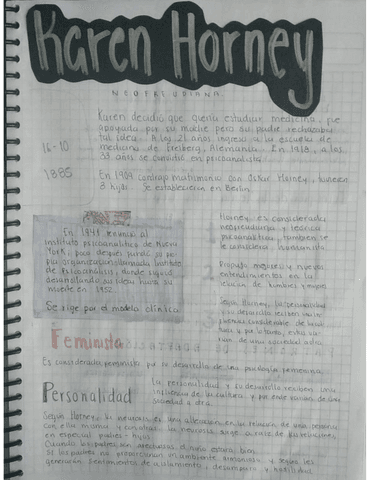 Karen Horney
NEOFREUDIANA
Karen decidió que quería estudiar medicina, fue
apoyada por su madre pero su padre rechazaba
tal idea. A los 21 años ingreso a la escuela de
16-10
medicina de Freiberg, Alemania. En 1913, a los
33 años se convirtió en psicoanalista.
1885
En 1909 contrajo matrimonio con Oskar Horney, tuvieron
3 hijas. Se establecieron en Berlín
En 1941 renunció al
instituto psicoanalítico de Nueva
York, poco después fundó su pro
pia organización llamada Instituto
de Psicoanálisis, donde siguió
desarrollando sus ideas hasta su
muerte en 1952.
Se rige por el modelo clínico
Horney, es considerada
neofreudiana y teórica
psicoanalítica, también se
le considera humanista
Propuso mejores y nuevos
entendimientos en la
relación de hombres y mujeres
Según Horney, la personalidad
y su desarrollo reciben influ
de una sociedad a otra
Feminista
Es considerada feminista por el desarrollo de una psicología femenina.
Personalidad
La personalidad y su desarrollo reciben una
influencia de la cultura y por ente varían de una
sociedad a otra.
Según Horney, la neurosis es una alteración en la relación de una persona
con ella misma y con los demás. La neurosis surge a raíz de las relaciones
en especial padres - hijos
Cuando los padres son afectuosos el niño estará bien.
Si los padres no proporcionan un ambiente armonioso y seguro les
generarán sentimientos de aislamiento, desamparo y hostilidad